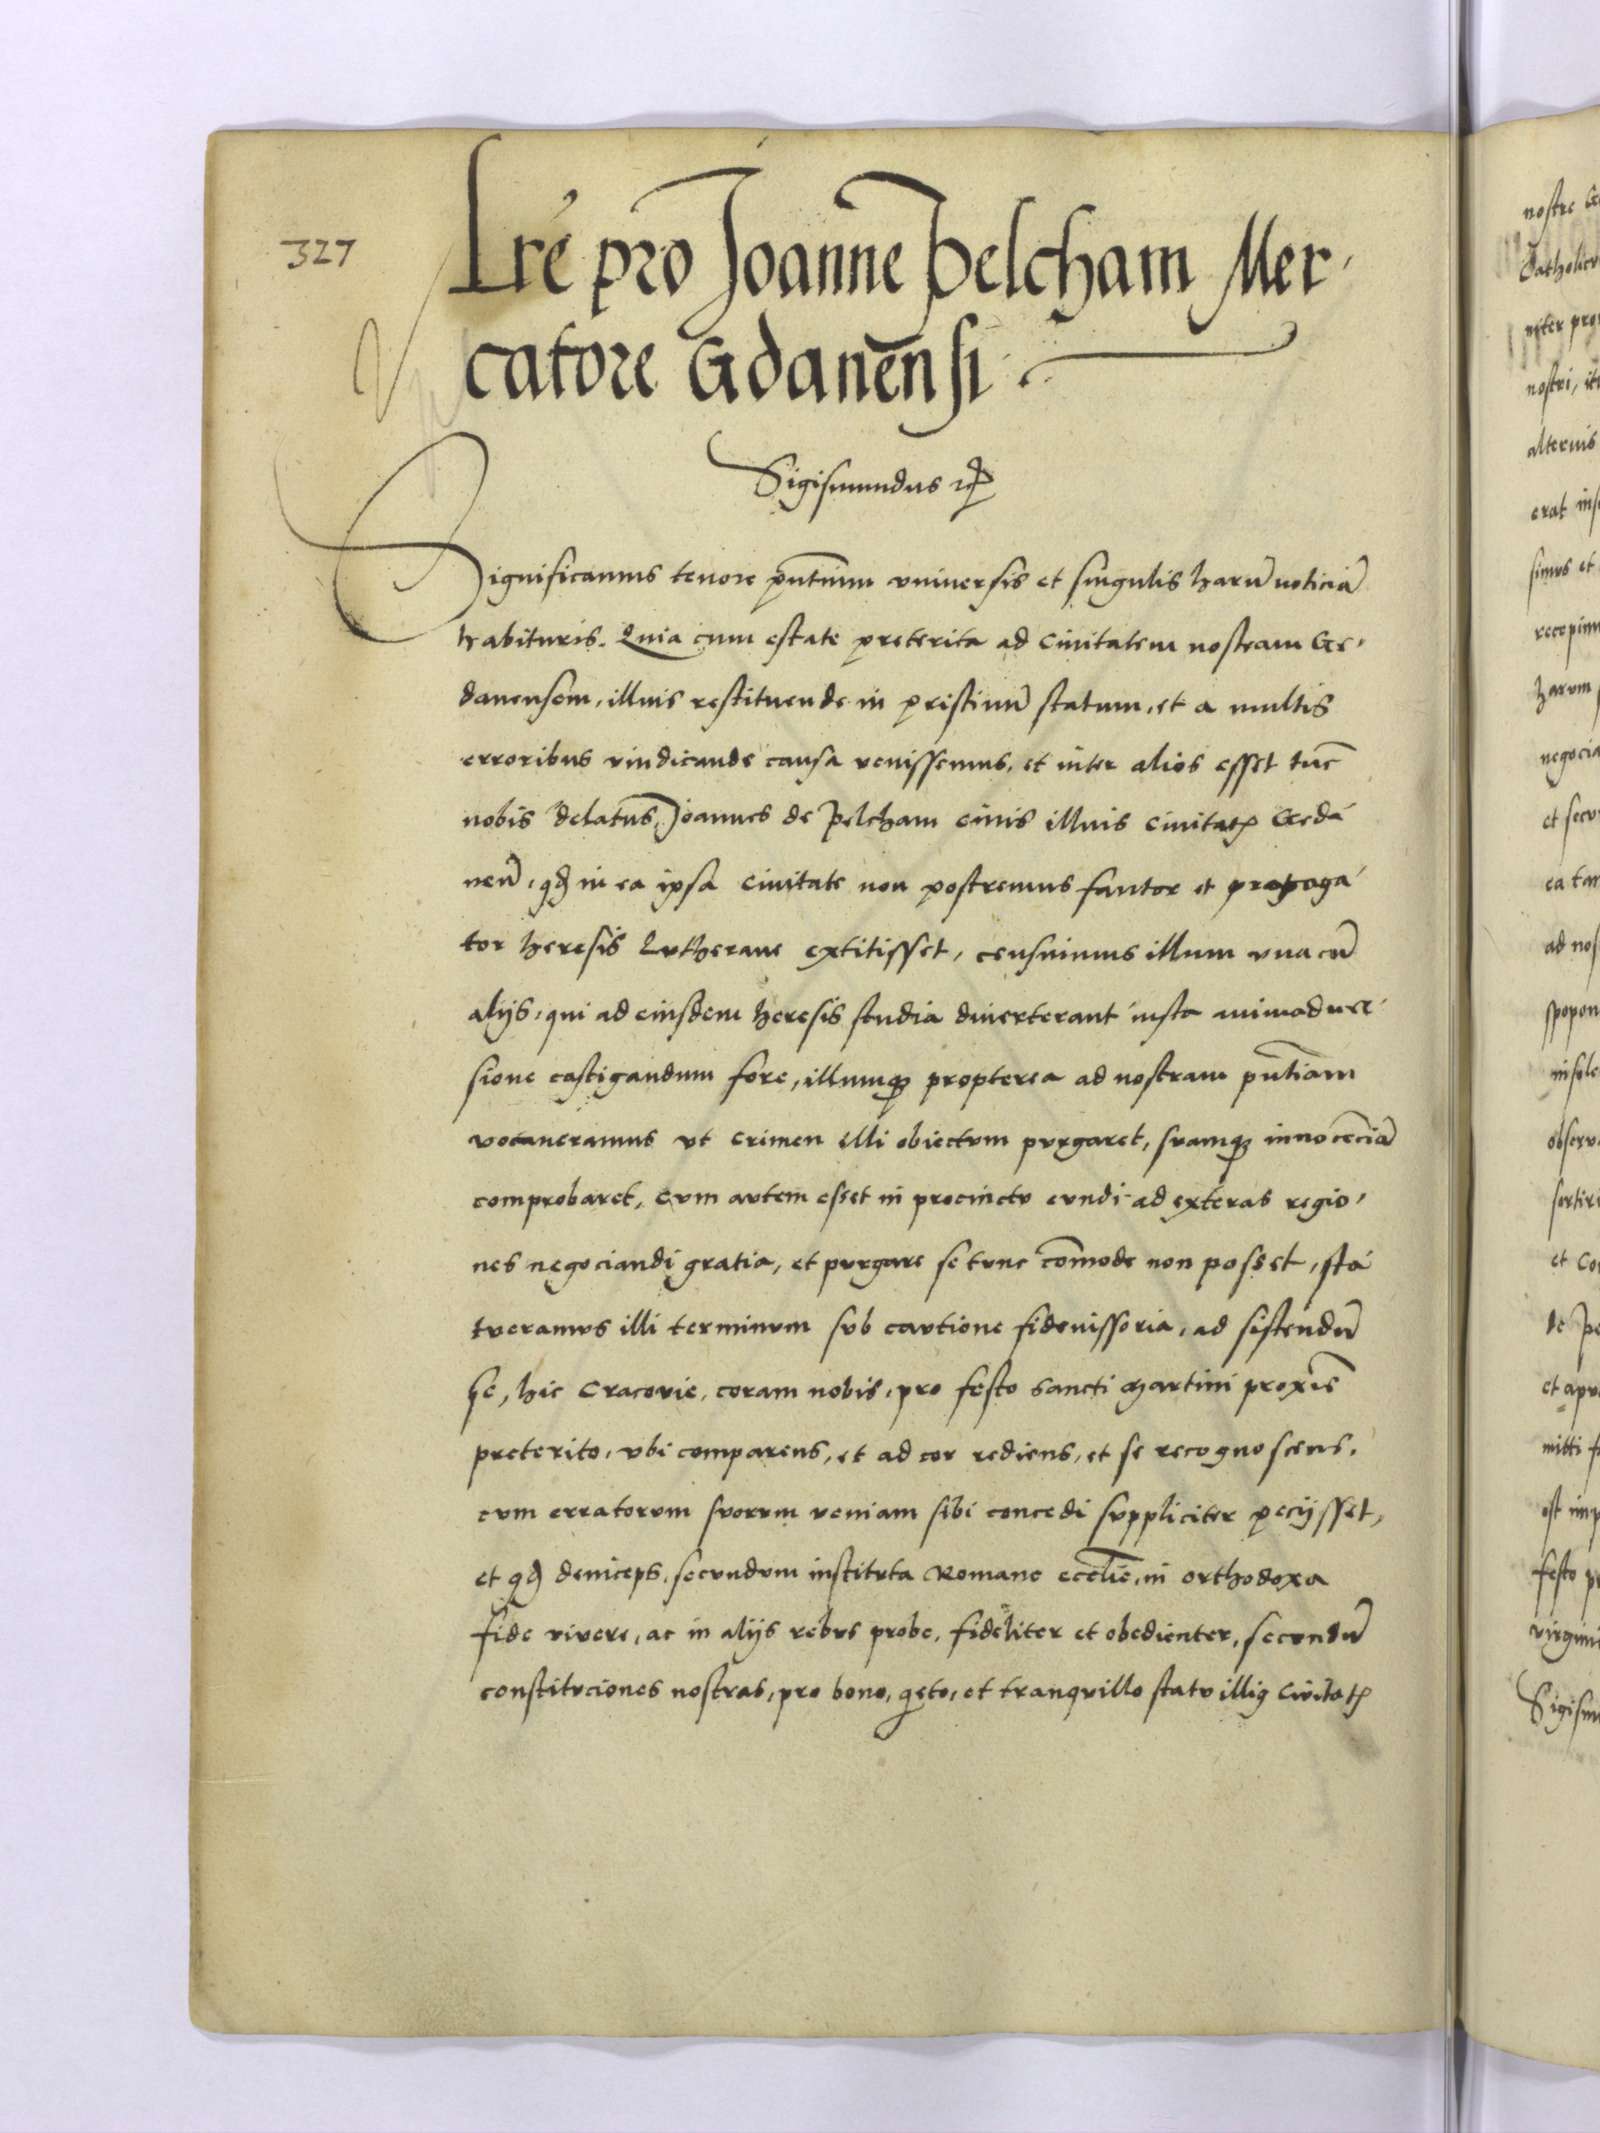 327
Lrē pro Joanne Pelcham Mer-
catore Gdanensi
Sigismundus etc
Significamus tenore pntium universis et singulis harū noticiā
habituris. Quia cum estate preterita ad civitatem nostram Ge-
danensem, illius restituende in pristinū statum, et a multis
erroribus vindicande causa venissemus, et inter alios esset tūc
nobis delatus, Joannes de Pelcham civis illius civitatꝭ Geda-
nen̄, qđ in ea ipsa civitate non postremus fautor et propaga-
tor heresis Lutherane extitisset, censuimus illum una cū
alijs, qui ad eiusdem heresis studia diverterant iusta animadver-
sione castigandum fore, illumqꝫ propterea ad nostram pn̄tiam
vocaveramus ut crimen illi obiectum purgaret, suamqꝫ innocēciā
comprobaret, cum autem esset in procinctu eundi ad exteras regio-
nes negociandi gratia, et purgare se tunc cōmode non posset, sta-
tueramus illi terminum sub cautione fideiussoria, ad sistendū
se, hic Cracovie, coram nobis, pro festo sancti Martini proxīe
preterito, ubi comparens, et ad cor rediens, et se recognoscens,
cum erratorum suorum veniam sibi concedi suppliciter peciisset,
et qđ deinceps, secundum instituta Romane eccliē, in orthodoxa
fide vivere, ac in alijs rebus probe, fideliter et obedienter, secundū
constituciones nostras, pro bono, qeto, et tranquillo statu illiꝰ Civitatꝭ
nostre Ge
Catholicu
niter pro
nostri, it
alterius
erat ins
simus et
recepim
harum
negocia
et secu
ea tam
ad nos
spopon
insole
observa
sortiri
et Co
de Pe
et apu
mitti f
est imp
festo p
virgini
Sigism